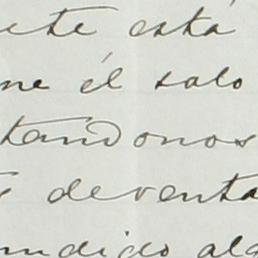 ete está
ne él salo
tandonos
de venta
undido alg